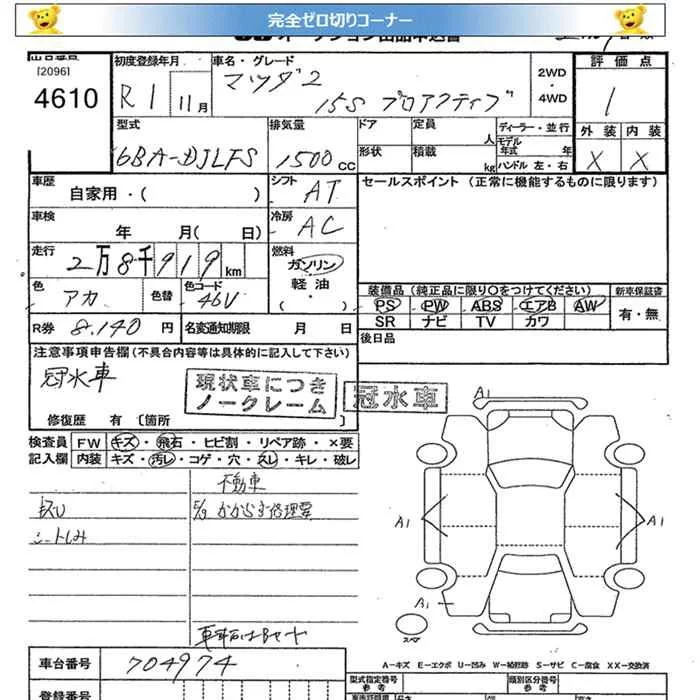 完全ゼロ切りコーナー
出品番号
[2096]
4610
初度登録年月
R1 11月
車名・グレード
マツダ2
15S プロアクティブ
2WD
・
4WD
評価点
1
外装 内装
X X
型式
6BA-DJLFS
排気量
1500 CC
ドア
定員
人
形状
積載
kg
ディーラー・並行
モデル年式 年
ハンドル 左・右
車歴
自家用・( )
シフト
AT
セールスポイント(正常に機能するものに限ります)
車検
年 月( 日)
冷房
AC
走行
2万8千919km
燃料
ガソリン
軽・油
( ・ )
色
アカ
色替
色コード
46V
R券 8.140 円
名変通知期限 月 日
装備品(純正品に限り〇をつけてください)
PS PW ABS エアB AW
SR ナビ TV カワ
新車保証書
有・無
後日品
注意事項申告欄(不具合内容等は具体的に記入して下さい)
冠水車
現状車につき
ノークレーム
冠水車
修復歴 有 〔箇所
検査員 FW キズ・飛石・ヒビ割・リペア跡・×要
記入欄 内装 キズ・汚レ・コゲ・穴・スレ・キレ・破レ
不動車
シートしみ
A1
A1
A1
A1
スペア
車台番号 704974
A−キズ E−エクボ U−凹み W−補修跡 S−サビ C−腐食 XX−交換済
型式指定番号
参考
類別区分番号
参考
登録番号